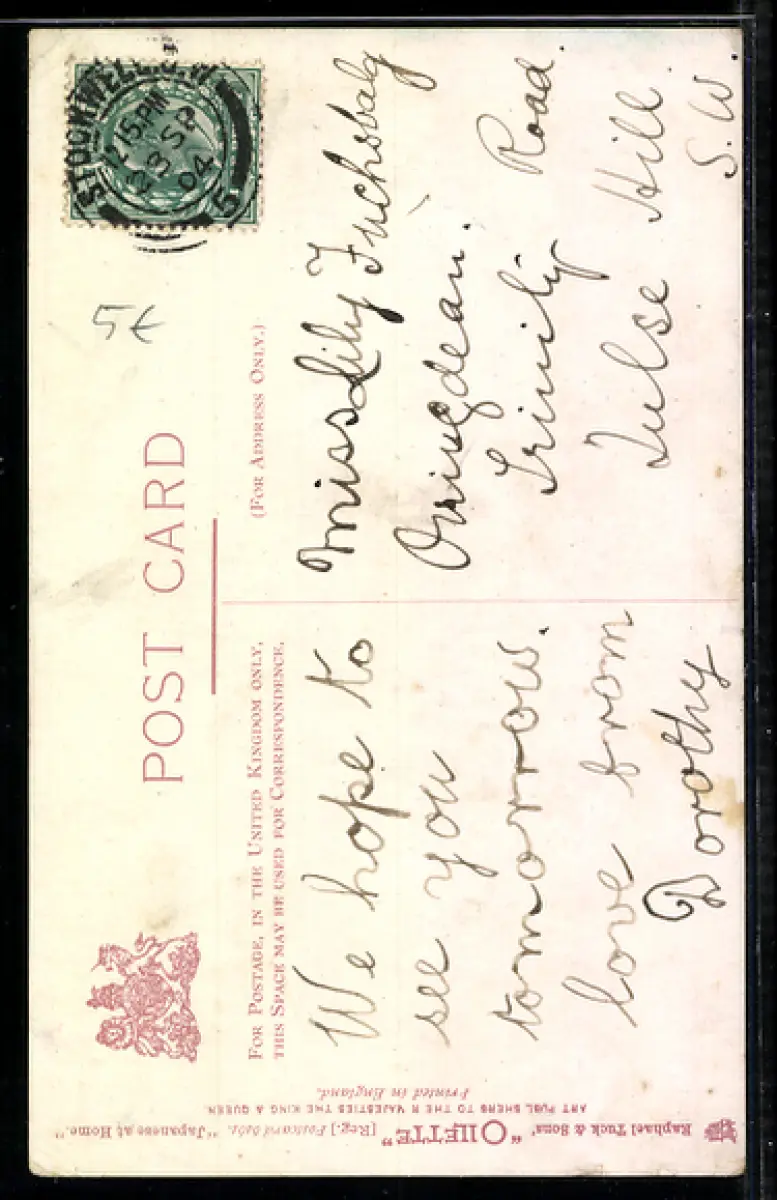 POST CARD
FOR POSTAGE, IN THE UNITED KINGDOM ONLY,
THIS SPACE MAY BE USED FOR CORRESPONDENCE.
(FOR ADDRESS ONLY.)
STOCKWELL S.W
2 15 PM
23 SP
04
5
5 €
We hope to
see you
tomorrow.
love from
Dorothy
Miss Lily Fuchsbalg
Ovingdean.
Trinity Road.
Tulse Hill.
S.W.
Raphael Tuck & Sons' "OILETTE" [Reg.] Postcard 6461. "Japanese at Home."
ART PUBLISHERS TO THEIR MAJESTIES THE KING & QUEEN.
Printed in England.